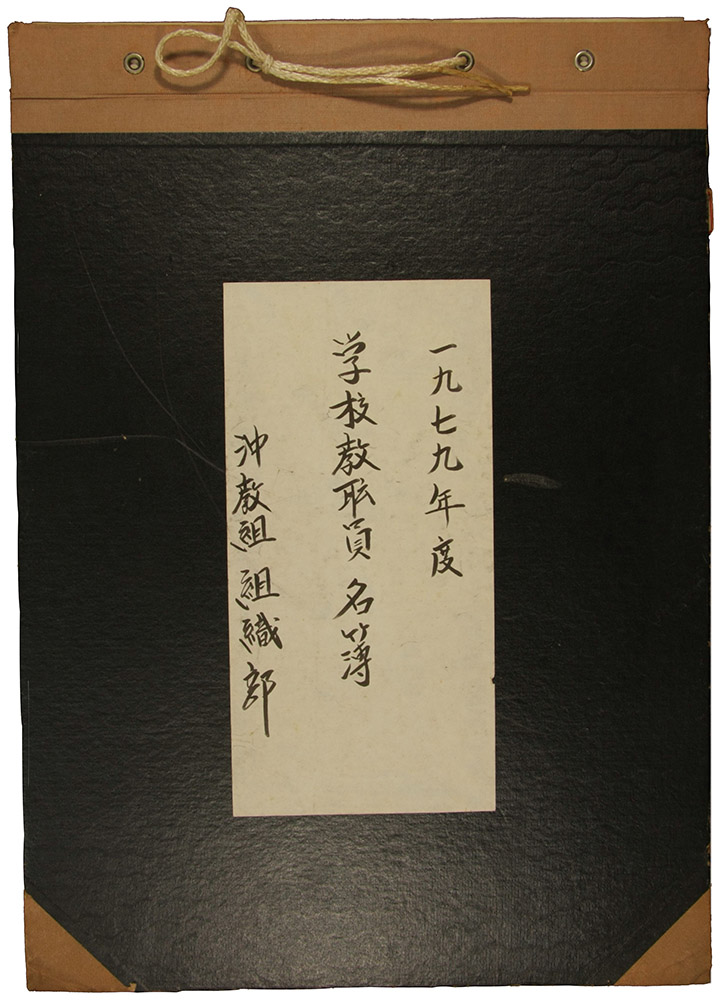 一九七九年度
学校教職員名簿
沖教組 組織部